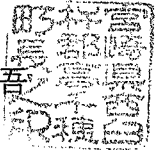 宮崎県西臼
杵郡高千穂
町長之印
吾